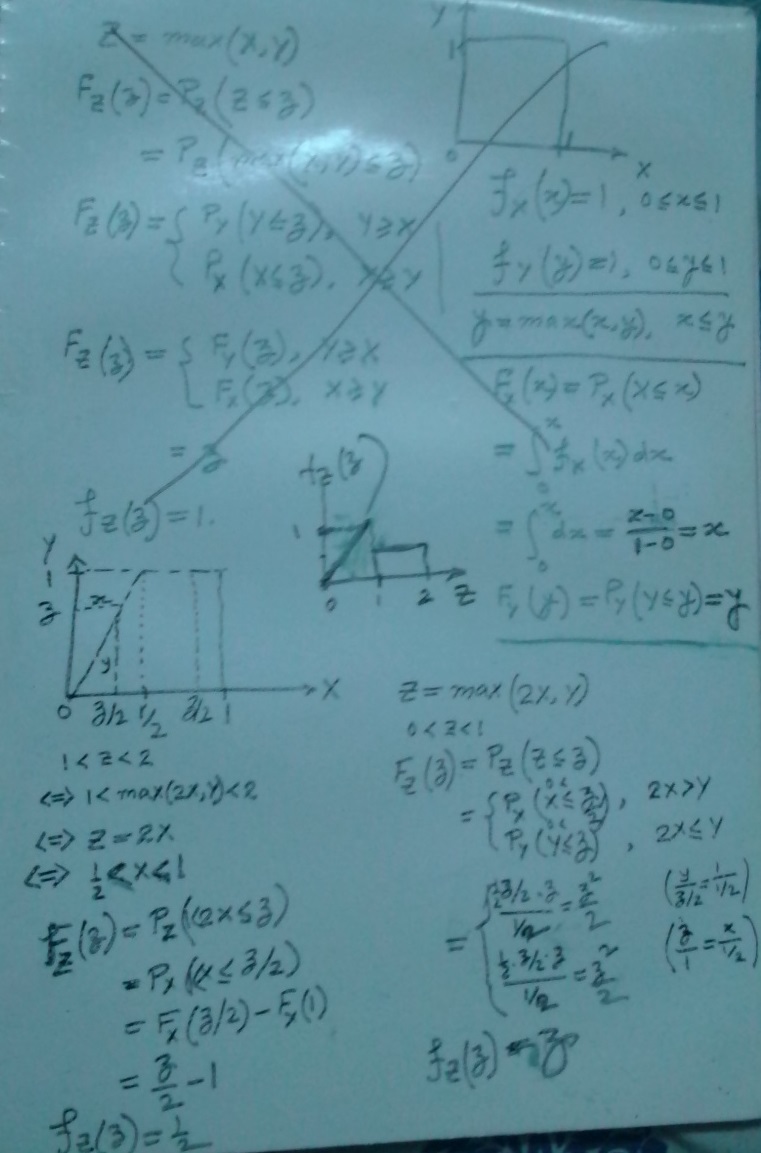 Z = max(X,Y)
F_Z(z) = P_Z(Z ≤ z)
= P_Z(max(X,Y) ≤ z)
F_Z(z) = { P_Y(Y ≤ z), Y ≥ X
P_X(X ≤ z), X ≥ Y
F_Z(z) = { F_Y(z), Y ≥ X
F_X(z), X ≥ Y
= z
f_Z(z) = 1.
Y
1
0
1
X
f_X(x) = 1, 0 ≤ x ≤ 1
f_Y(y) = 1, 0 ≤ y ≤ 1
y = max(x,y), x ≤ y
F_X(x) = P_X(X ≤ x)
= ∫_0^x f_X(x) dx
= ∫_0^x dx = (x-0)/(1-0) = x
F_Y(y) = P_Y(Y ≤ y) = y
f_Z(z)
1
0
1
2
Z
Y
1
z
x
y
0
z/2
1/2
z/2
1
X
1 < z < 2
<=> 1 < max(2X,Y) < 2
<=> Z = 2X
<=> 1/2 < X ≤ 1
F_Z(z) = P_Z(1<2X ≤ z)
= P_X(X ≤ z/2)
= F_X(z/2) - F_X(1)
= z/2 - 1
f_Z(z) = 1/2
Z = max(2X,Y)
0 < z < 1
F_Z(z) = P_Z(Z ≤ z)
= { P_X(0< X ≤ z/2), 2X > Y
P_Y(0< Y ≤ z), 2X ≤ Y
= { (1/2 · z/2 · z)/(1/2) = z²/2 (y/(z/2) = 1/(1/2))
(1/2 · z/2 · z)/(1/2) = z²/2 (z/1 = x/(1/2))
f_Z(z) = z